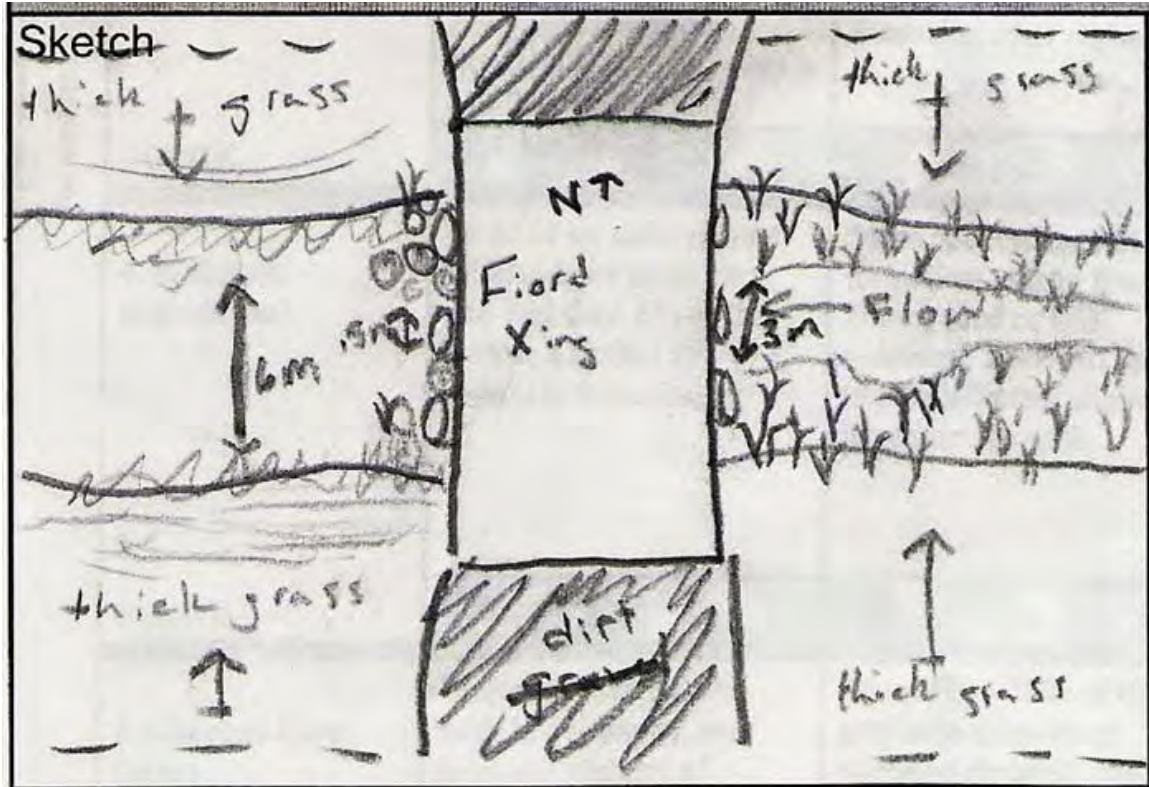 Sketch
thick grass
thick grass
N↑
Fiord
Xing
Flow
3m
.5m
6m
thick grass
dirt
thick grass